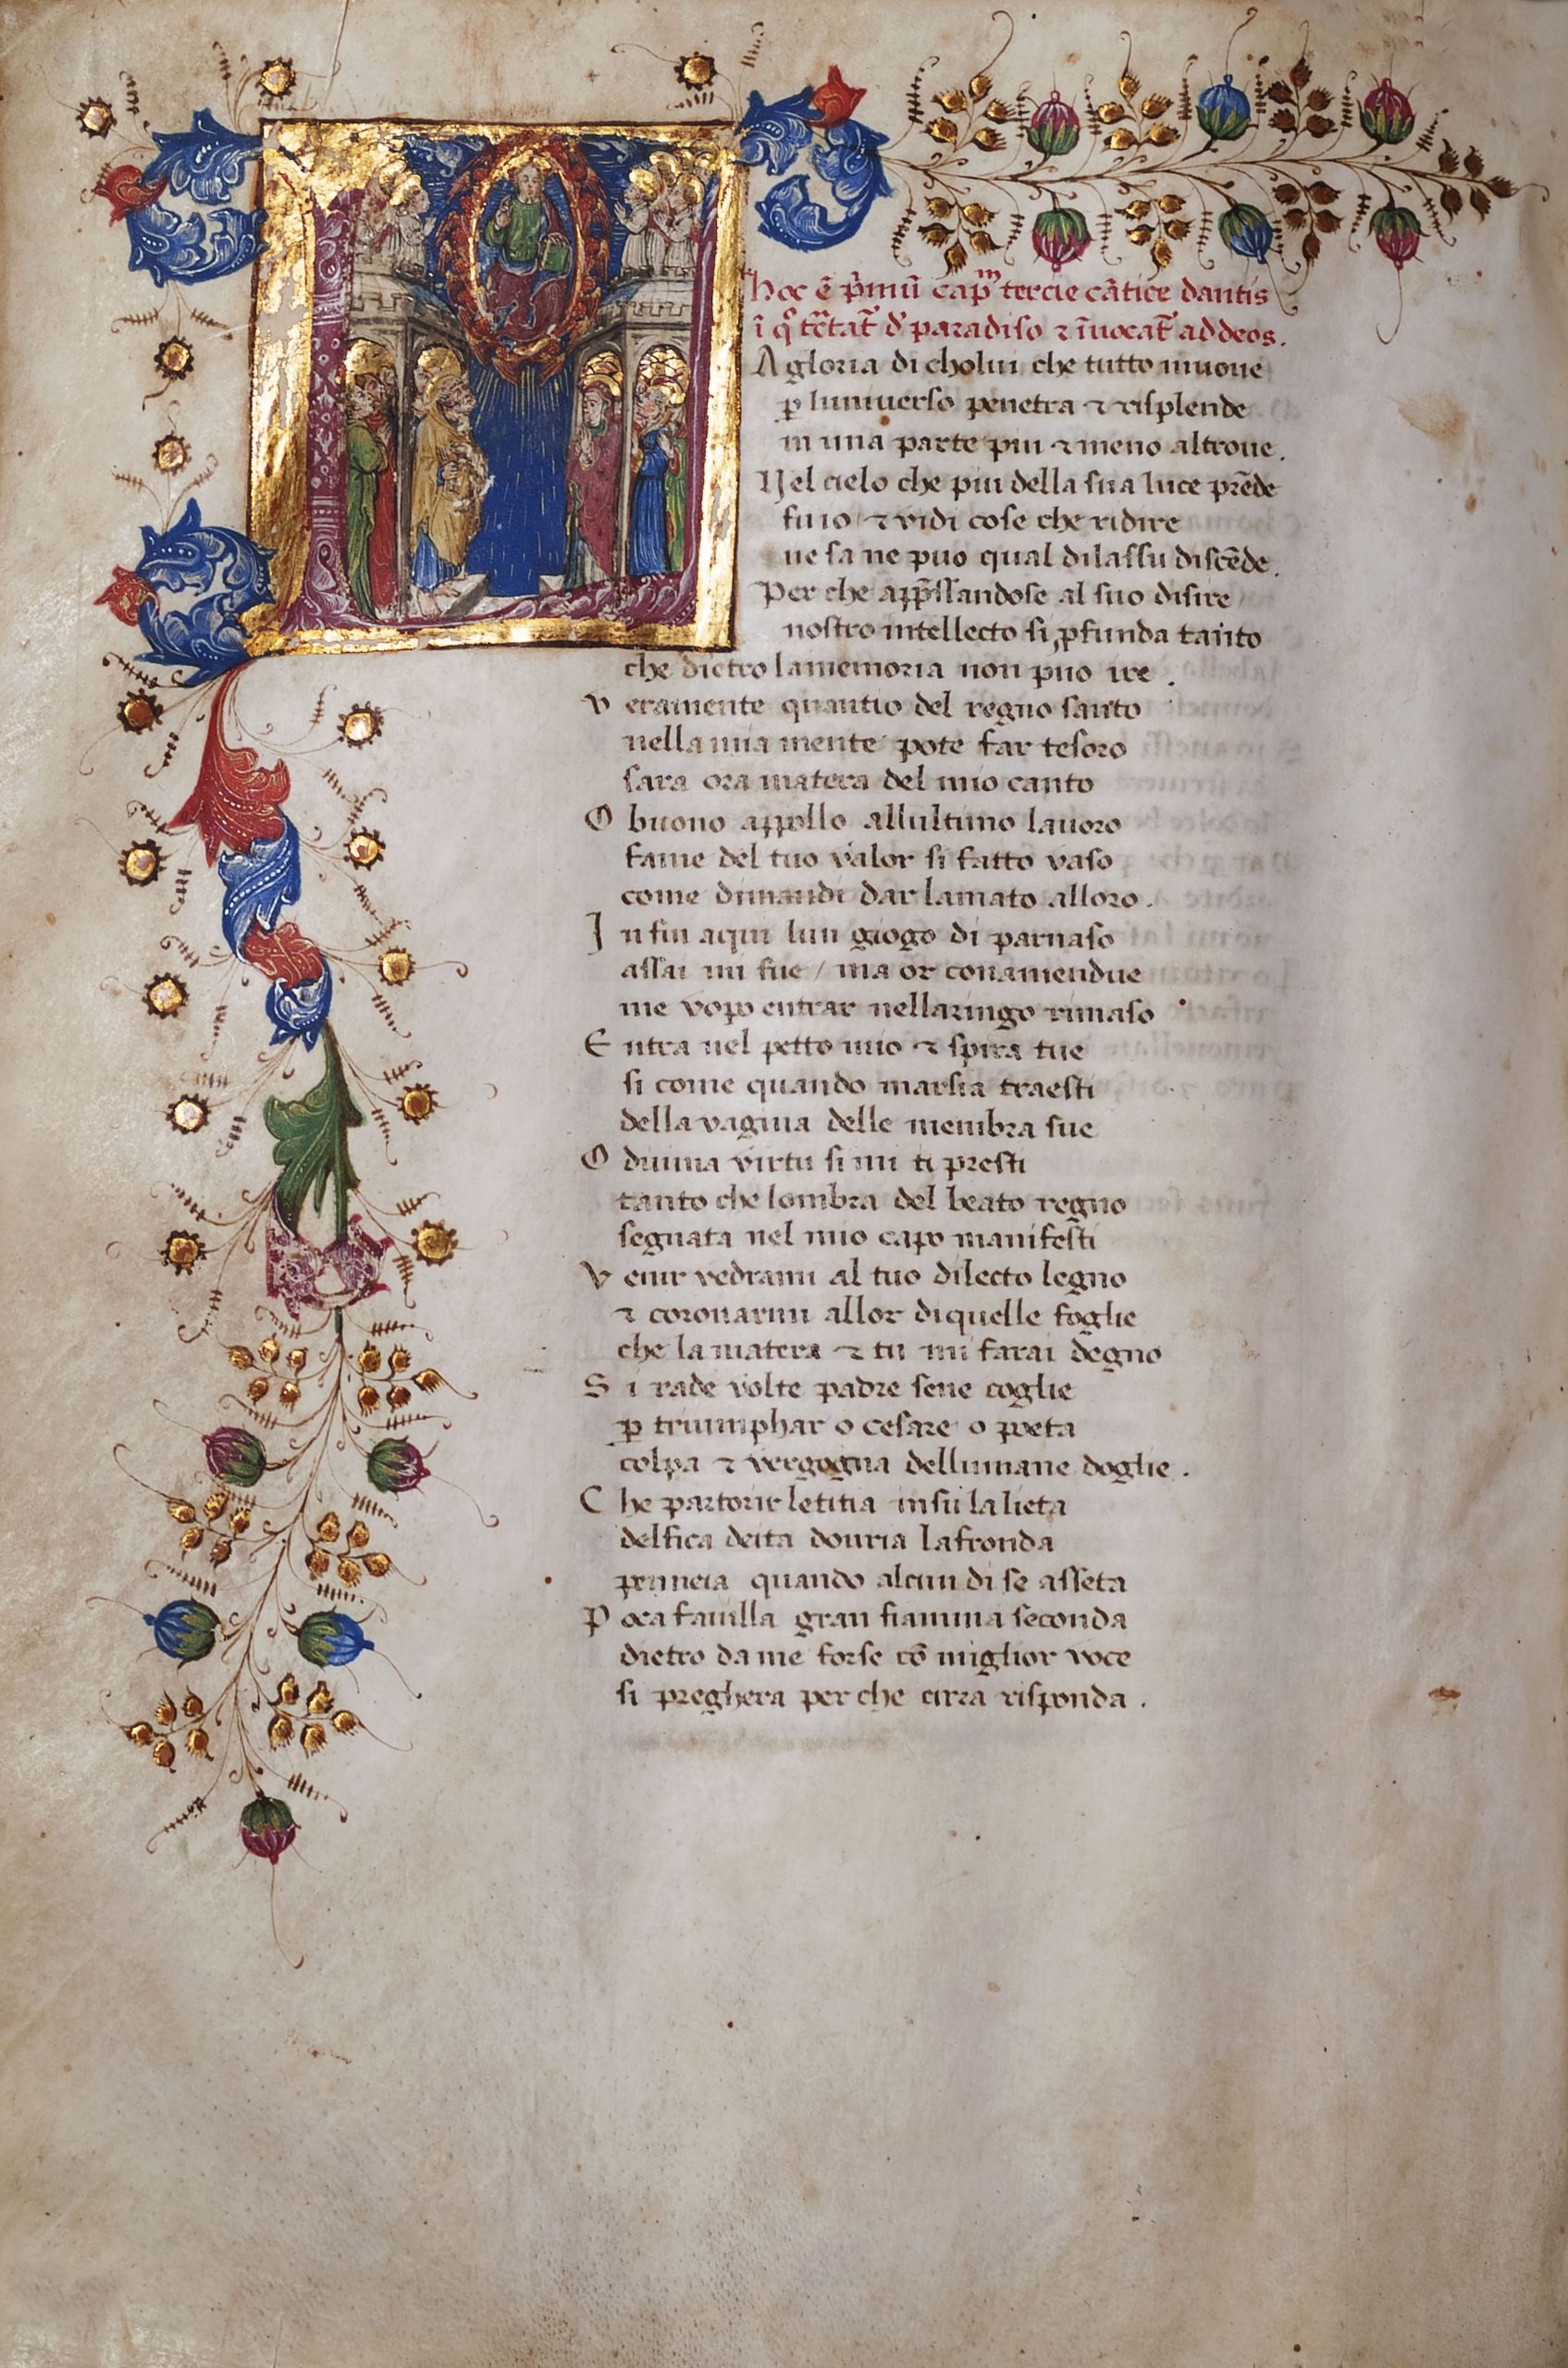 hoc ē p̄imū cap^m tercie cātice dantis
ī q° tr̄tat̄ d' paradiso ⁊ īuocat̄ ad deos.
A gloria di cholui che tutto muoue
ꝑ luniuerso penetra ⁊ risplende
in una parte piu ⁊ meno altroue.
Nel cielo che piu della sua luce prēde
fu io ⁊ vidi cose che ridire
ne sa ne puo qual dilassu discēde.
Per che app̄ssandose al suo disire
nostro intellecto si ꝓfunda tanto
che dietro lamemoria non puo ire.
v eramente quantio del regno santo
nella mia mente pote far tesoro
sara ora matera del mio canto
O buono appollo allultimo lauoro
fame del tuo valor si fatto vaso
come dimandi dar lamato alloro.
I n fin aqui lun giogo di parnaso
assai mi fue / ma or conamendue
me vopo entrar nellaringo rimaso
E ntra nel petto mio ⁊ spira tue
si come quando marsia traesti
della vagina delle membra sue
O diuina virtu si mi ti presti
tanto che lombra del beato regno
segnata nel mio capo manifesti
V enir vedrami al tuo dilecto legno
⁊ coronarmi allor diquelle foglie
che la matera ⁊ tu mi farai degno
S i rade volte padre sene coglie
ꝑ triumphar o cesare o poeta
colpa ⁊ vergogna dellumane doglie.
C he partorir letitia insu la lieta
delfica deita douria lafronda
penneia quando alcun di se asseta
P oca fauilla gran fiamma seconda
dietro da me forse cō miglior voce
si preghera per che cirra risponda.